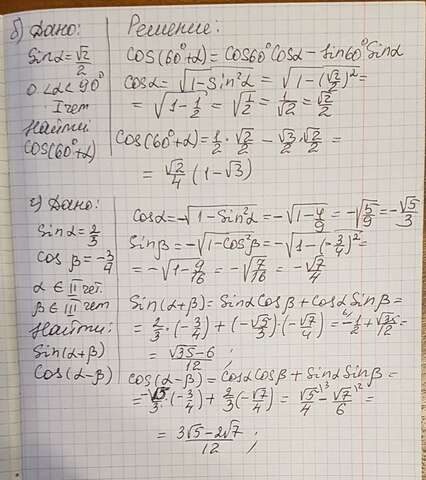 б) Дано:
Решение:
Sinα = √2/2
0 < α < 90°
I чет
Найти:
cos(60°+α)
cos(60°+α) = cos60°cosα - sin60°sinα
cosα = √(1-sin²α) = √(1-(√2/2)²) =
= √(1-1/2) = √(1/2) = 1/√2 = √2/2
cos(60°+α) = 1/2 · √2/2 - √3/2 · √2/2 =
= √2/4 (1-√3)
г) Дано:
Sinα = 2/3
cosβ = -3/4
α ∈ II чет.
β ∈ III чет
Найти:
Sin(α+β)
Cos(α-β)
cosα = -√(1-sin²α) = -√(1-4/9) = -√(5/9) = -√5/3
Sinβ = -√(1-cos²β) = -√(1-(-3/4)²) =
= -√(1-9/16) = -√(7/16) = -√7/4
Sin(α+β) = SinαCosβ + CosαSinβ =
= 2/3 · (-3/4) + (-√5/3) · (-√7/4) = -1/2 + √35/12 =
= √35-6/12 ;
cos(α-β) = cosαcosβ + SinαSinβ =
= -√5/3 · (-3/4) + 2/3 (-√7/4) = √5/4 - √7/6 =
= 3√5-2√7/12 ;